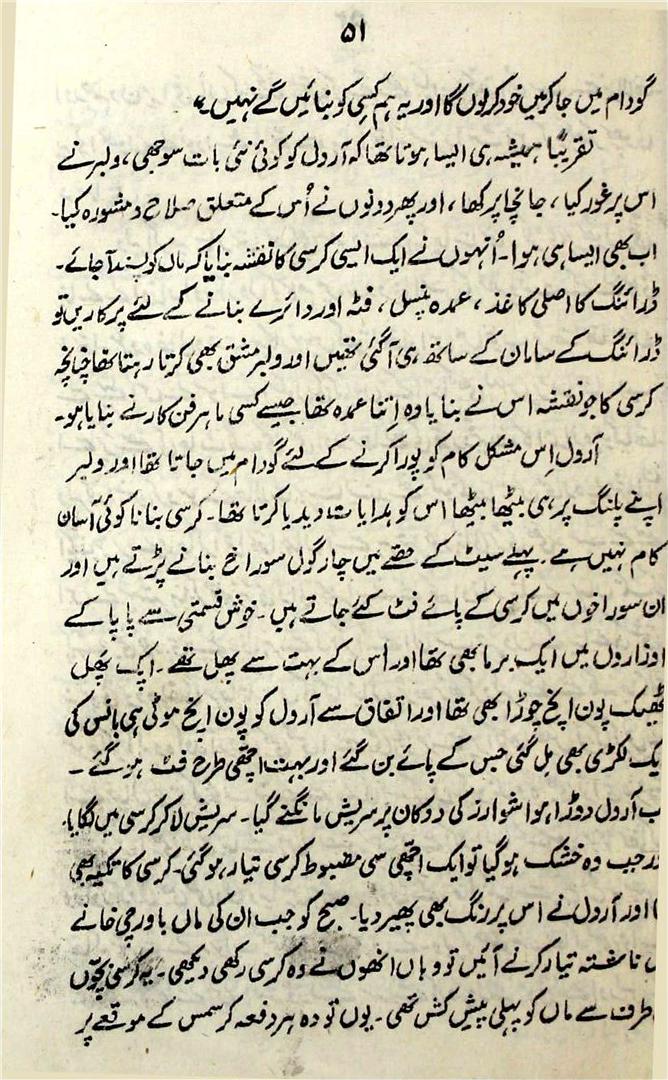 ۵۱
گودام میں جا کر میں خود کر لوں گا اور یہ ہم کسی کو بتائیں گے نہیں۔"
تقریباً ہمیشہ ہی ایسا ہوتا تھا کہ آرول کو کوئی نئی بات سوجھی، ولبر نے
اس پر غور کیا، جانچا پرکھا، اور پھر دونوں نے اُس کے متعلق صلاح و مشورہ کیا۔
اب بھی ایسا ہی ہوا۔ اُنہوں نے ایک ایسی کرسی کا نقشہ بنایا کہ ماں کو پسند آجائے۔
ڈرائنگ کا اصلی کاغذ، عمدہ پنسل، فٹہ اور دائرے بنانے کے لئے پرکاریں تو
ڈرائنگ کے سامان کے ساتھ ہی آگئی تھیں اور ولبر مشق بھی کرتا رہتا تھا چنانچہ
کرسی کا جو نقشہ اس نے بنایا وہ اِتنا عمدہ تھا جیسے کسی ماہر فن کار نے بنایا ہو۔
آرول اِس مشکل کام کو پورا کرنے کے لئے گودام میں جاتا تھا اور ولبر
اپنے پلنگ پر ہی بیٹھا بیٹھا اس کو ہدایات دیدیا کرتا تھا۔ کرسی بنانا کوئی آسان
کام نہیں ہے۔ پہلے سیٹ کے حصے میں چار گول سوراخ بنانے پڑتے ہیں اور
ان سوراخوں میں کرسی کے پائے فٹ کئے جاتے ہیں۔ خوش قسمتی سے پاپا کے
اوزاروں میں ایک برما بھی تھا اور اس کے بہت سے پھل تھے۔ ایک پھل
ٹھیک پون اِنچ چوڑا بھی تھا اور اتفاق سے آرول کو پون اِنچ موٹی ہی بانس کی
یک لکڑی بھی مل گئی جس کے پائے بن گئے اور بہت اچھی طرح فٹ ہو گئے۔
ب آرول دوڑا ہوا شوارز کی دوکان پر سریش مانگنے گیا۔ سریش لا کر کرسی میں لگایا،
در جب وہ خشک ہو گیا تو ایک اچھی سی مضبوط کرسی تیار ہو گئی۔ کرسی کا تکیہ بھی
ا اور آرول نے اس پر رنگ بھی پھیر دیا۔ صبح کو جب ان کی ماں باورچی خانے
ں ناشتہ تیار کرنے آئیں تو وہاں انھوں نے وہ کرسی رکھی دیکھی۔ یہ کرسی بچّوں
طرف سے ماں کو پہلی پیش کش تھی۔ یوں تو وہ ہر دفعہ کرسمس کے موقعے پر